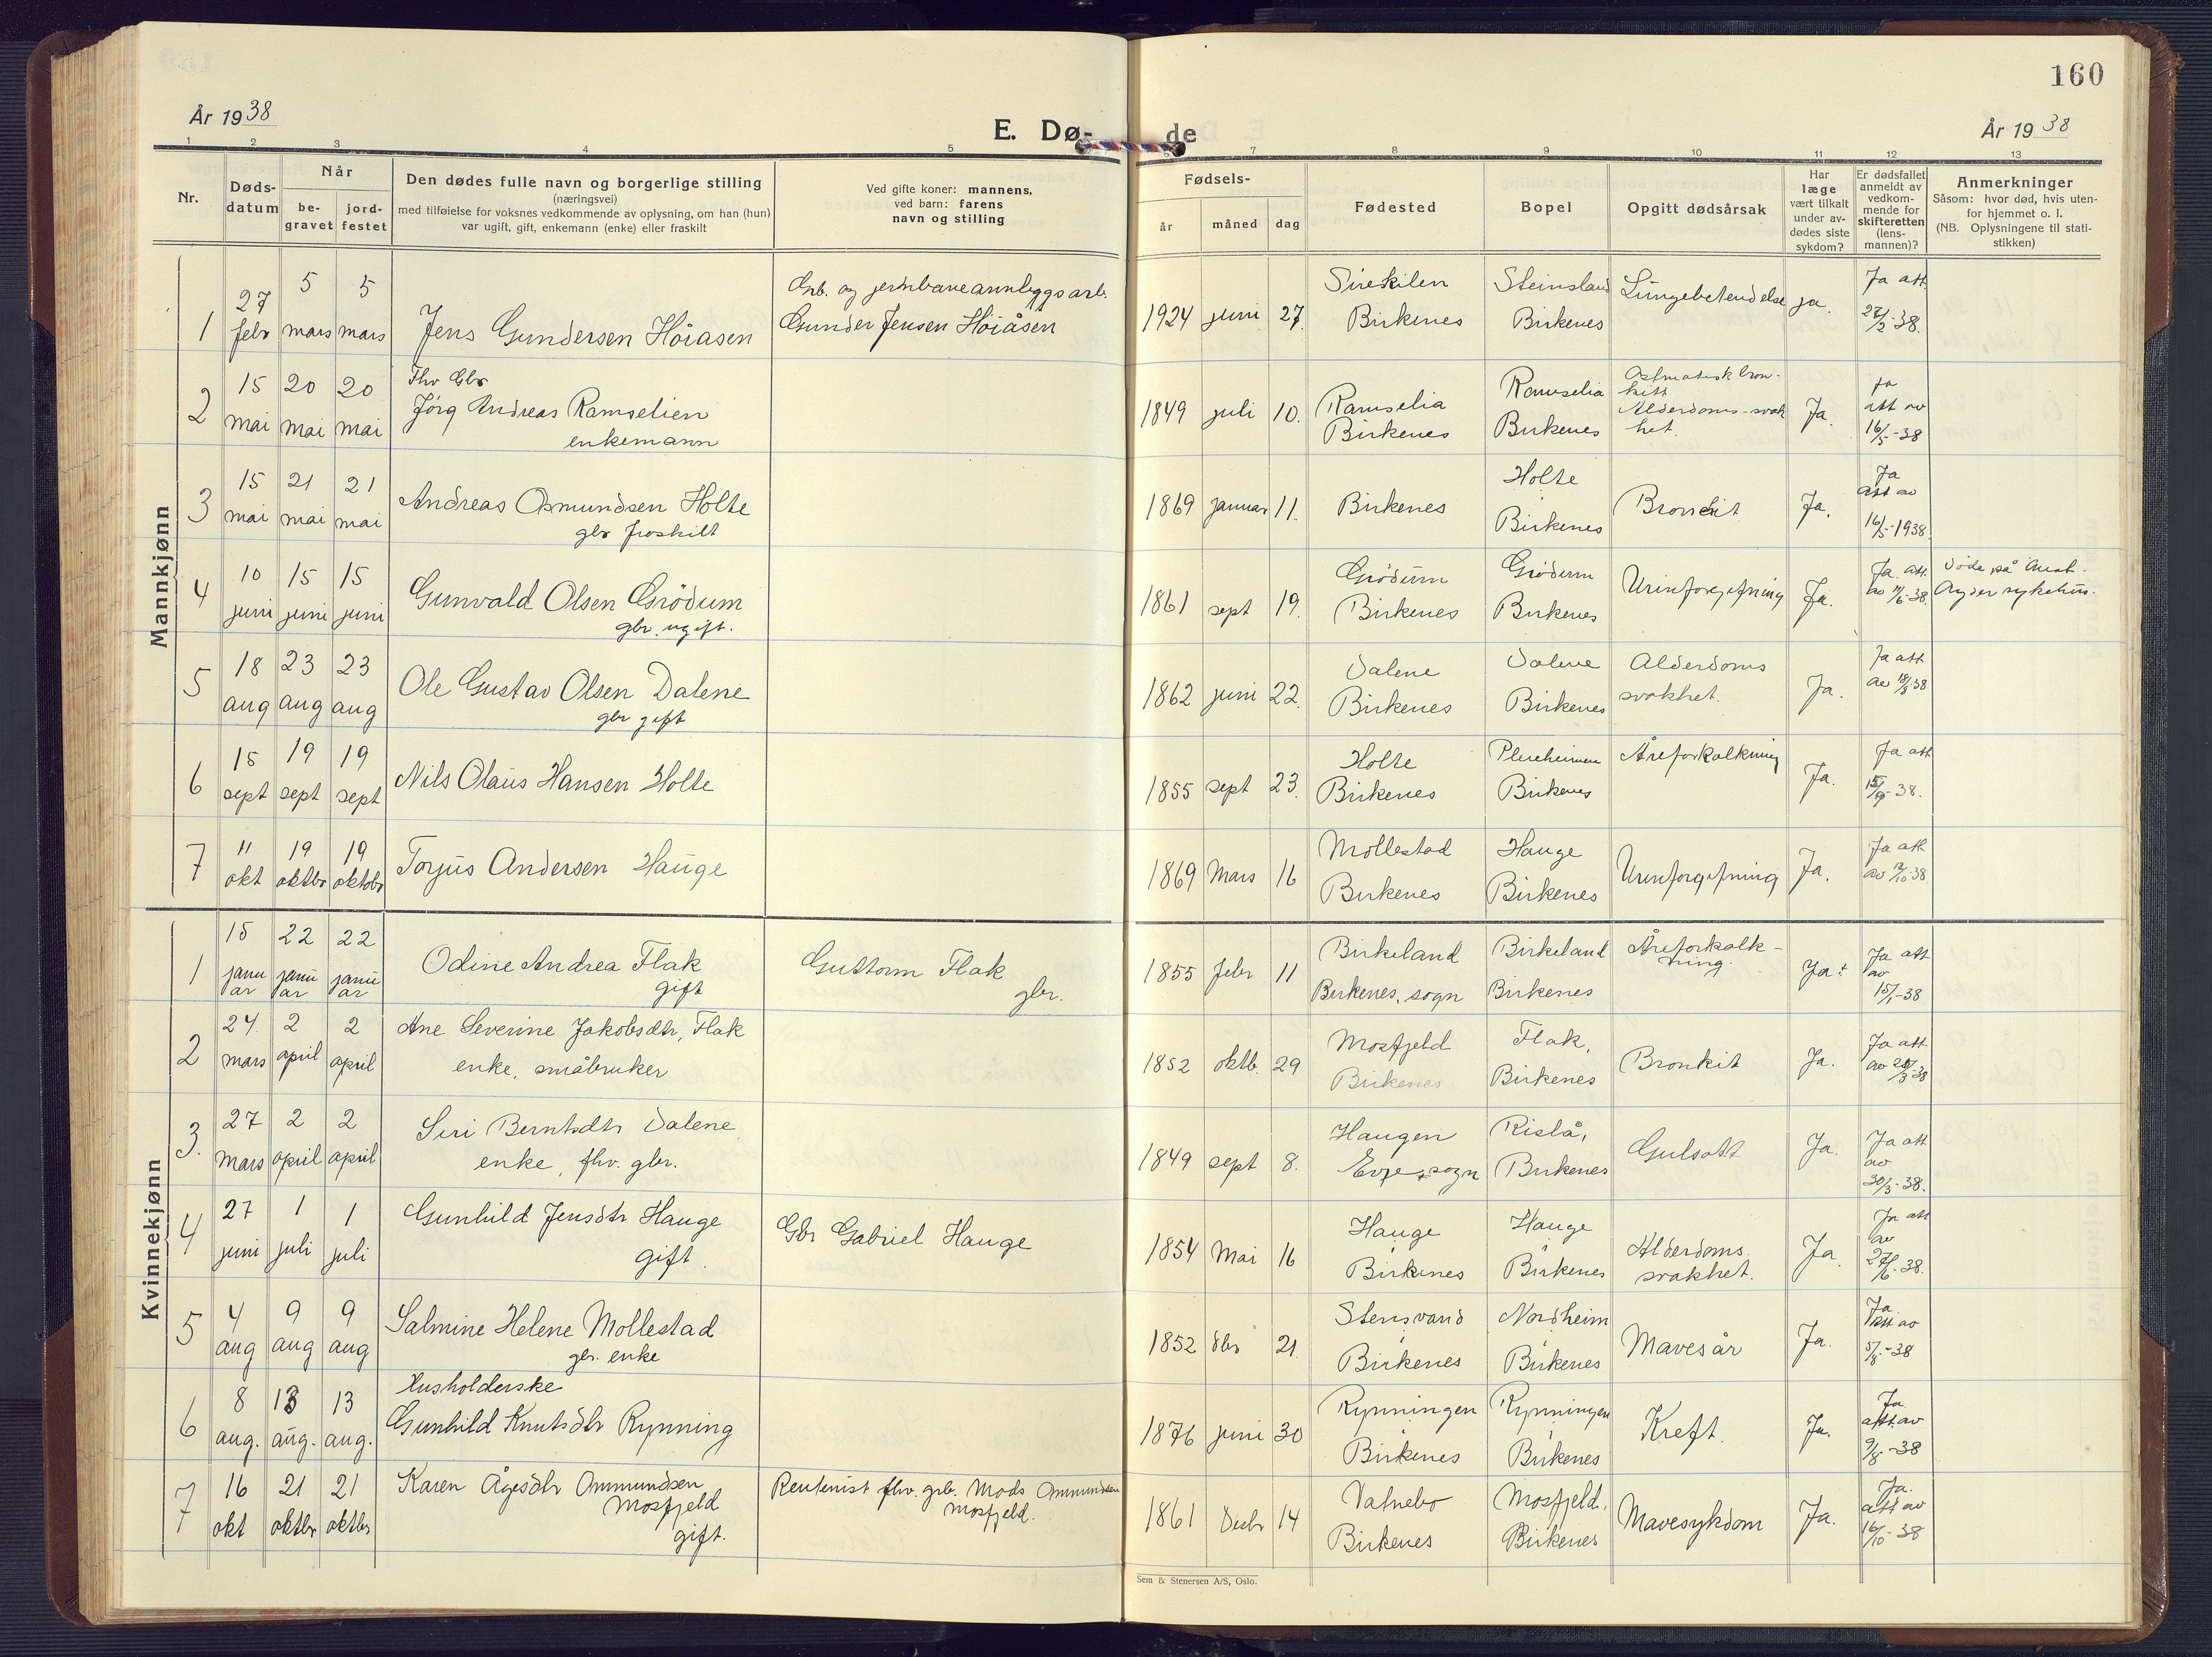 160
År 1938
E. Dø-
de
År 1938
1 2 3 4 5 7 8 9 10 11 12 13
Nr.
Døds-
datum
Når
be-
gravet
jord-
festet
Den dødes fulle navn og borgerlige stilling
(næringsvei)
med tilføielse for voksnes vedkommende av oplysning, om han (hun)
var ugift, gift, enkemann (enke) eller fraskilt
Ved gifte koner: mannens,
ved barn: farens
navn og stilling
Fødsels-
år måned dag
Fødested
Bopel
Opgitt dødsårsak
Har
læge
vært tilkalt
under av-
dødes siste
sykdom?
Er dødsfallet
anmeldt av
vedkom-
mende for
skifteretten
(lens-
mannen)?
Anmerkninger
Såsom: hvor død, hvis uten-
for hjemmet o. l.
(NB. Oplysningene til stati-
stikken)
Mannkjønn
1
27
febr
5
mars
5
mars
Jens Gundersen Höiåsen
og jernbaneannleggsarb.
Gunder Jensen Höiåsen
1924 juni 27.
Sirekilen
Birkenes
Steinsland
Birkenes
Lungebetendelse
ja.
Ja att.
27/2-38.
2
15
mai
20
mai
20
mai
Fhv Gbr
Jörg Andreas Ramselien
enkemann
1849 juli 10.
Ramselia
Birkenes
Ramselia
Birkenes
Astmatisk bron-
kitt
Alderdoms-svak
het.
Ja.
Ja
att av
16/5-38
3
15
mai
21
mai
21
mai
Andreas Osmundsen Holte
gbr fraskilt
1869 januar 11.
Birkenes
Holte
Birkenes
Bronkit
Ja.
Ja
att av
16/5-1938
4
10
juni
15
juni
15
juni
Gunvald Olsen Grödum
gbr. ugift.
1861 sept 19.
Grödum
Birkenes
Grödum
Birkenes
Urinforgiftning
Ja.
Ja. att.
av 11/6-38.
Döde på Aust-
Agder sykehus.
5
18
aug
23
aug
23
aug
Ole Gustav Olsen Dalene
gbr gift
1862 juni 22.
Dalene
Birkenes
Dalene
Birkenes
Alderdoms
svakhet.
Ja.
Ja att
av 18/8-38
6
15
sept
19
sept
19
sept
Nils Olaus Hansen Holte
1855 sept 23.
Holte
Birkenes
Pleieheimen
Birkenes
Åreforkalkning
Ja.
Ja att
15/9-38.
7
11
okt
19
oktbr
19
oktobr
Torjus Andersen Hauge
1869 Mars 16
Mollestad
Birkenes
Hauge
Birkenes
Urinforgiftning
Ja.
Ja att
av 12/10-38.
Kvinnekjønn
1
15
janu
ar
22
janu
ar
22
janu
ar
Odine Andrea Flak
gift
Guttorm Flak
gbr.
1855 febr 11
Birkeland
Birkenes, sogn
Birkeland
Birkenes
Åreforkalk-
ning.
Ja
Ja att
av
15/1-38
2
24.
mars
2
april
2
april
Ane Severine Jakobsdtr, Flak
enke, småbruker
1852 oktb. 29
Mosfjeld
Birkenes
Flak,
Birkenes
Bronkit
Ja.
Ja att
av
3.
27
mars
2
april
2
april
Siri Berntsdtr Dalene
enke, fhv. gbr.
1849 sept 8.
Haugen
Evje, sogn
Rislå,
Birkenes
Gulsott
Ja.
Ja att
av
30/3-38.
4
27
juni
1
juli
1
juli
Gunhild Jensdtr Hauge
gift.
Gbr Gabriel Hauge
1854 Mai 16
Hauge
Birkenes
Hauge
Birkenes
Alderdoms.
svakhet.
Ja.
Ja att
av
27/6-38.
5
4
aug
9
aug
9
aug
Salmine Helene Mollestad
gbr. enke
1852 dbr 21
Stensvand
Birkenes
Nordheim
Birkenes
Mavesår
Ja.
Ja.
att av
5/8-38
6
8
aug.
13
aug.
13
aug.
Husholderske
Gunhild Knutsdtr Rynning
1876 juni 30
Rynningen
Birkenes
Rynningen
Birkenes
Kreft.
Ja.
Ja.
att av
9/8-38
7
16
okt
21
oktbr
21
oktbr
Karen Ågesdtr Ommundsen
Mosfjeld
gift.
Rentenist fhv. grb. Mads Ommundsen
Mosfjeld.
1861 Desbr 14
Vatnebo
Birkenes
Mosfjeld.
Birkenes
Mavesykdom
Ja.
Ja.
att av
16/10-38
Sem & Stenersen A/S, Oslo.